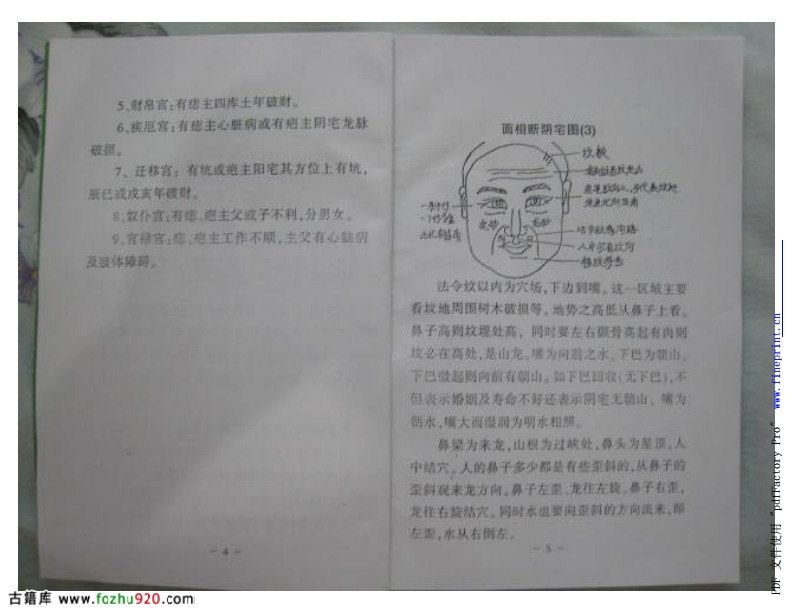 5、财帛宫:有痣主四库土年破财。
6、疾厄宫:有痣主心脏病或有疤主阴宅龙脉
破损。
7、迁移宫:有坑或疤主阳宅其方位上有坑,
辰巳或戌亥年破财。
8、奴仆宫:有痣、疤主父或子不利,分男女。
9、官禄宫:痣、疤主工作不顺,主父有心脑病
及肢体障碍。
- 4 -
面相断阴宅图(3)
法令纹以内为穴场,下边到嘴。这一区域主要
看坟地周围树木破损等。地势之高低从鼻子上看。
鼻子高则坟埋处高,同时要左右颧骨高起有肉则
坟必在高处,是山龙。嘴为向前之水。下巴为朝山。
下巴微起则向前有朝山。如下巴回收(无下巴),不
但表示婚姻及寿命不好还表示阴宅无朝山。嘴为
朝水,嘴大而湿润为明水相照。
鼻梁为来龙,山根为过峡处,鼻头为星顶,人
中结穴。人的鼻子多少都是有些歪斜的,从鼻子的
歪斜观来龙方向。鼻子左歪、龙往左旋。鼻子右歪,
龙往右旋结穴。同时水也要向歪斜的方向流来,即
左歪,水从右倒左。
- 5 -
PDF 文件使用 "pdfFactory Pro" www.fineprint.cn
古籍库 www.fozhu920.com